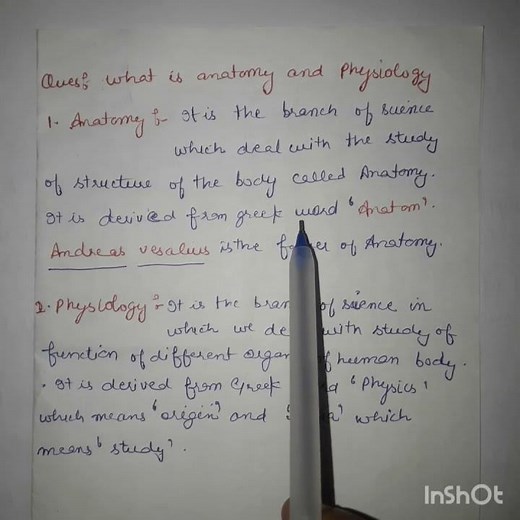 Ques:- what is anatomy and Physiology
1. Anatomy :- It is the branch of science
which deal with the study
of structure of the body called Anatomy.
It is derived from greek word 'Anatom'.
Andreas vesalius is the of Anatomy.
2. Physiology :- It is the bran of science in
which we de with study of
function of different organ f human body.
. It is derived from Greek 'Physics'
which means 'origin' and which
means 'study'.
InShOt